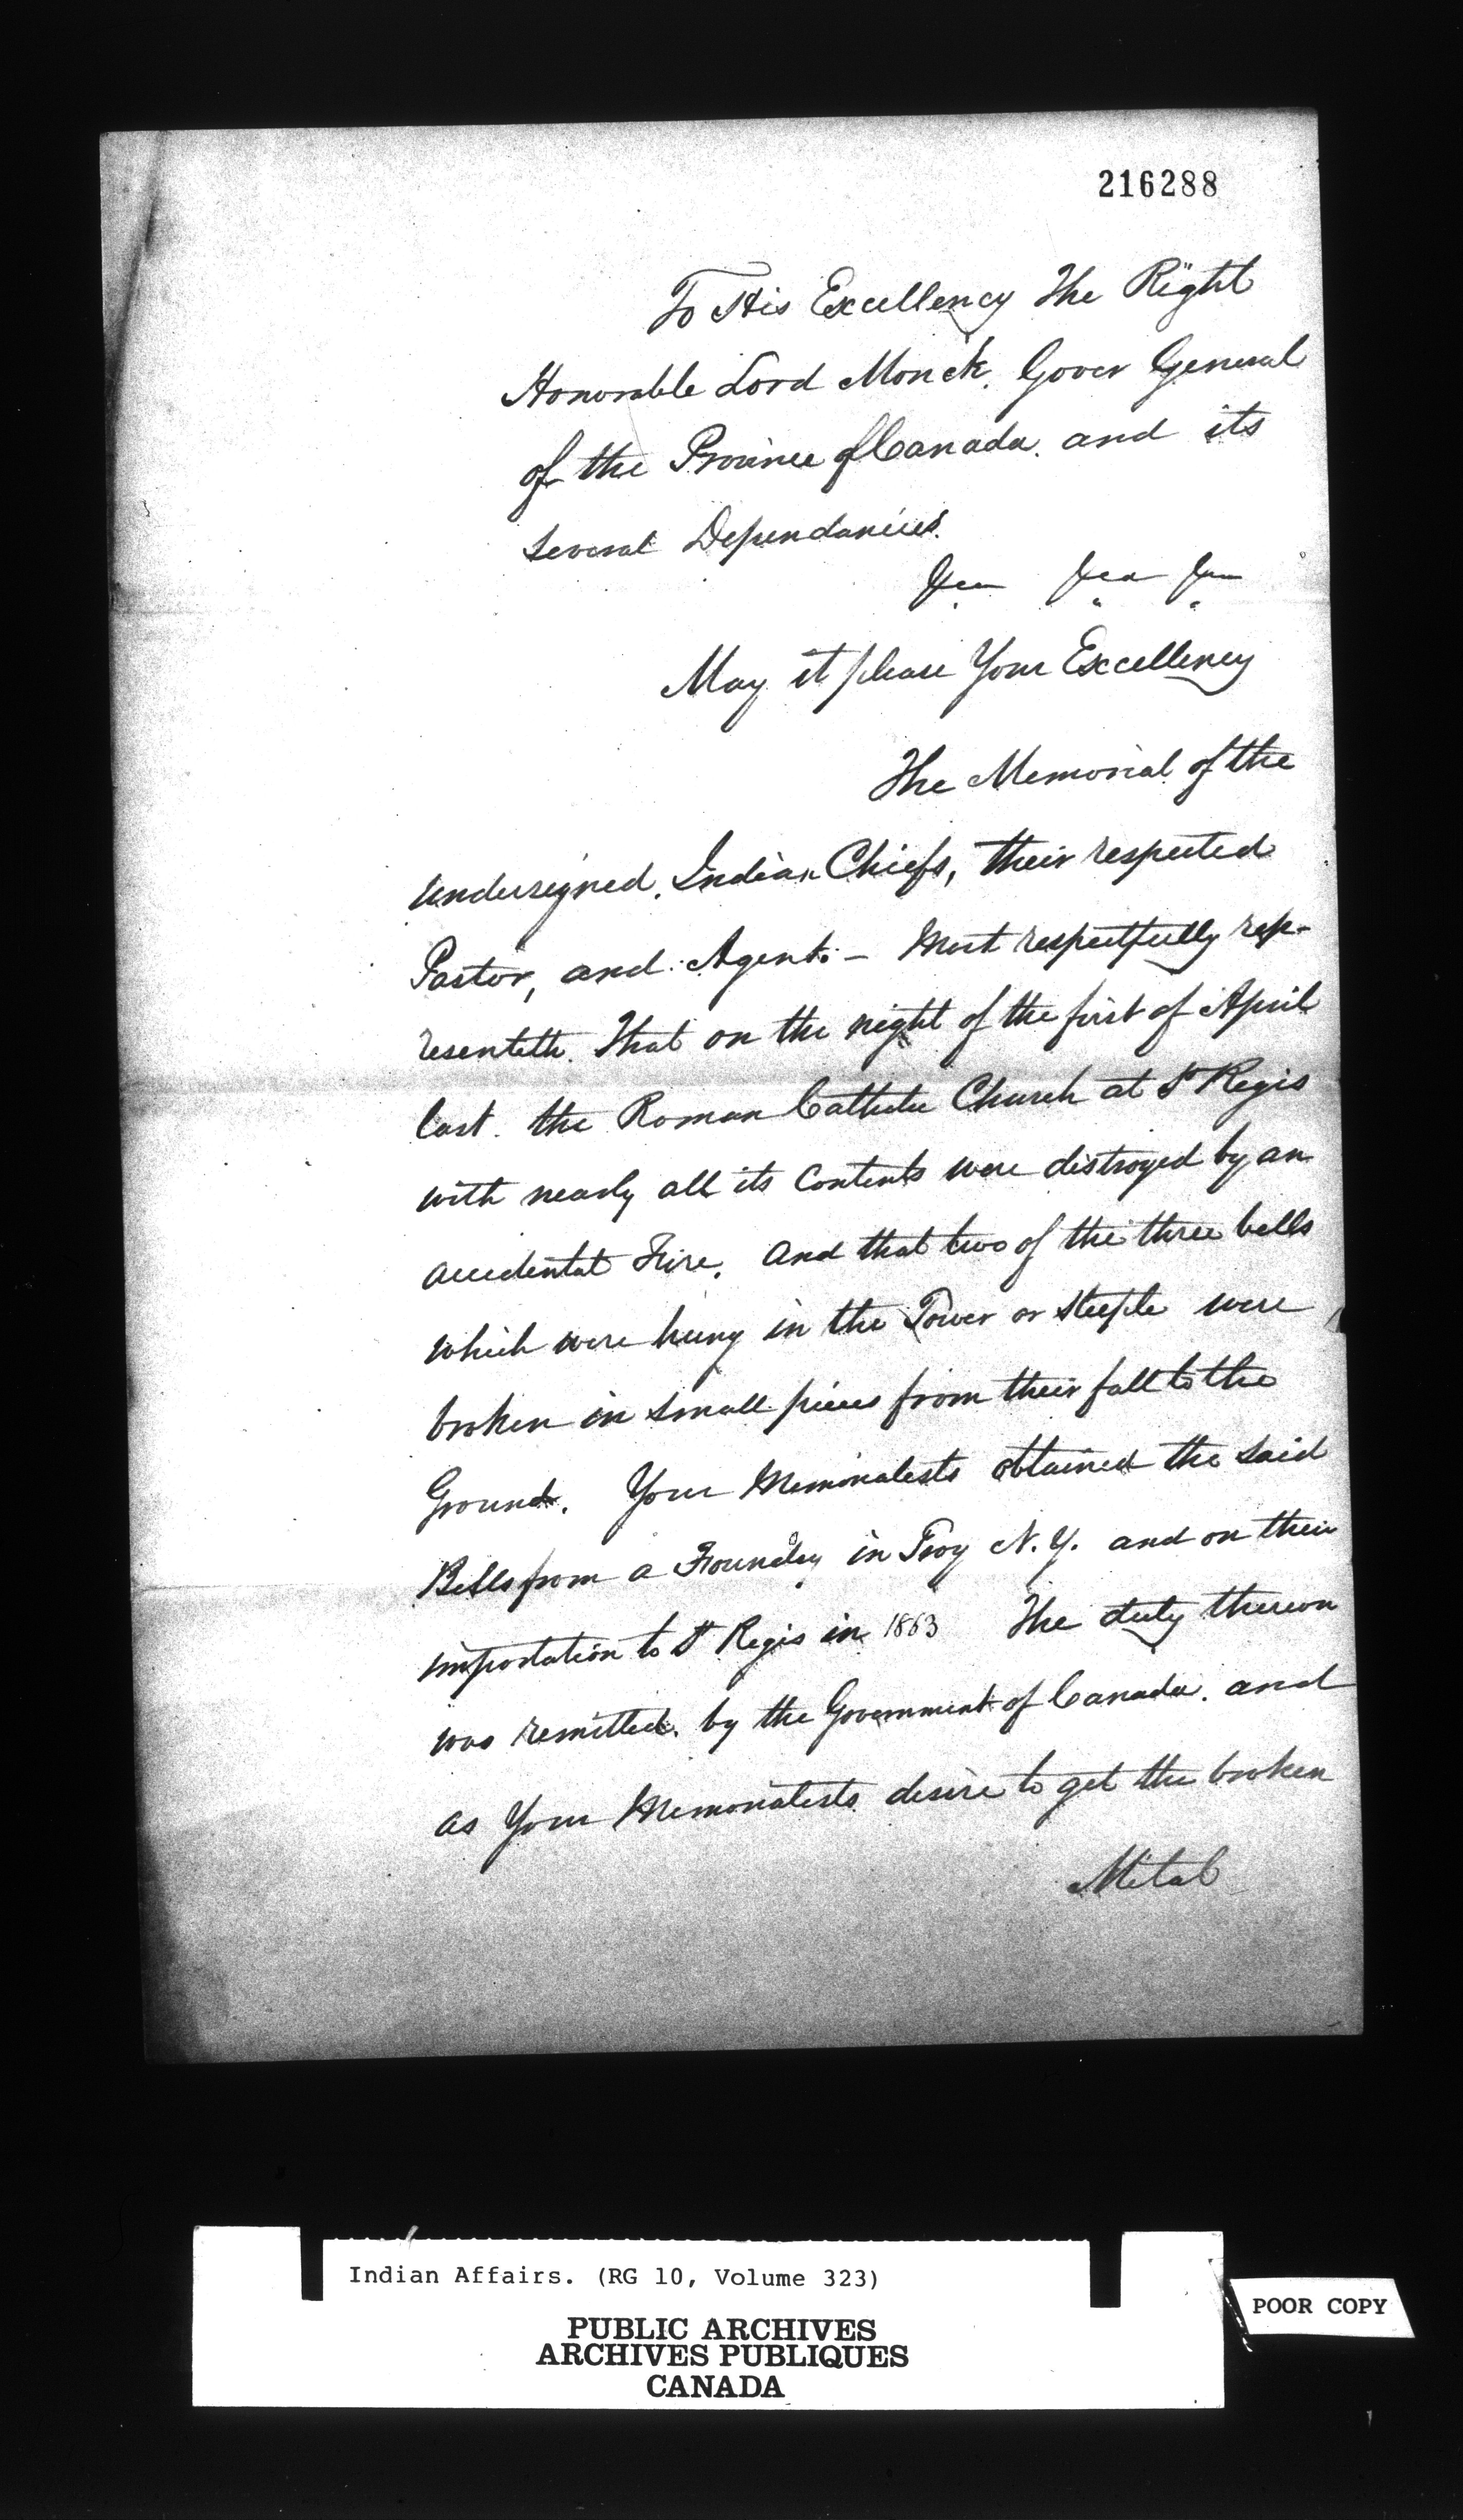 216288
To His Excellency The Right
Honorable Lord Monck. Gover General
of the Province of Canada. and its
Several Dependancies.
May it please Your Excellency
The Memorial of the
undersigned. Indian Chiefs, their respected
Pastor, and Agent. – Most respectfully rep-
resenteth. That on the night of the first of April
last. the Roman Catholic Church at St Regis
with nearly all its Contents were distroyed by an
accidental Fire. and that two of the three bells
which were hung in the Tower or Steeple were
broken in small pieces from their fall to the
Ground. Your Memorialists obtained the said
Bells from a Foundry in Troy N.Y. and on their
importation to St Regis in 1863 The duty thereon
was remitted. by the Government of Canada. and
as Your Memorialists desire to get the broken
Metal
Indian Affairs. (RG 10, Volume 323)
PUBLIC ARCHIVES
ARCHIVES PUBLIQUES
CANADA
POOR COPY